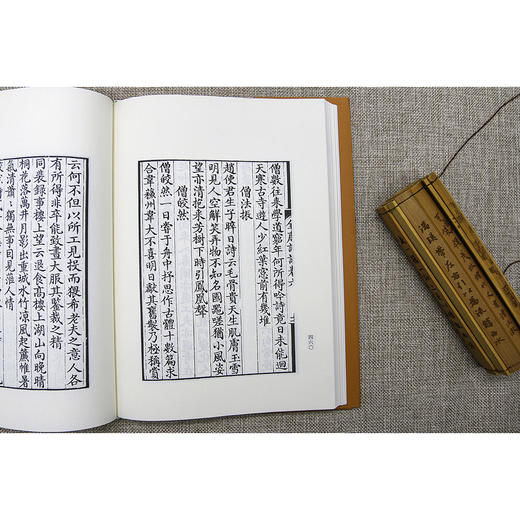 全唐詩話卷六
僧數往來學道窮年何所得吟詩竟日未能迴
天寒古寺遊人少紅葉窗前有幾堆
僧法振
趙使君生子晬日詩云毛骨貴天生肌膚玉雪
明見人空解笑弄物不知名國器嗟猶小風姿
望亦清抱來芳樹下時引鳳凰聲
僧皎然
僧皎然一日嘗于舟中抒思作古體十數篇求
合韋蘇州韋大不喜明日獻其舊製乃極稱賞
四六〇
云何不但以所工見投而猥希老夫之意人各
有所得非卒能致晝大服其鑒裁之精
同裴錄事樓上望云退食高樓上湖山向晚晴
桐花落萬井月影出重城水竹涼風起簾帷暑
氣清蕭蕭獨無事因見蒞人情